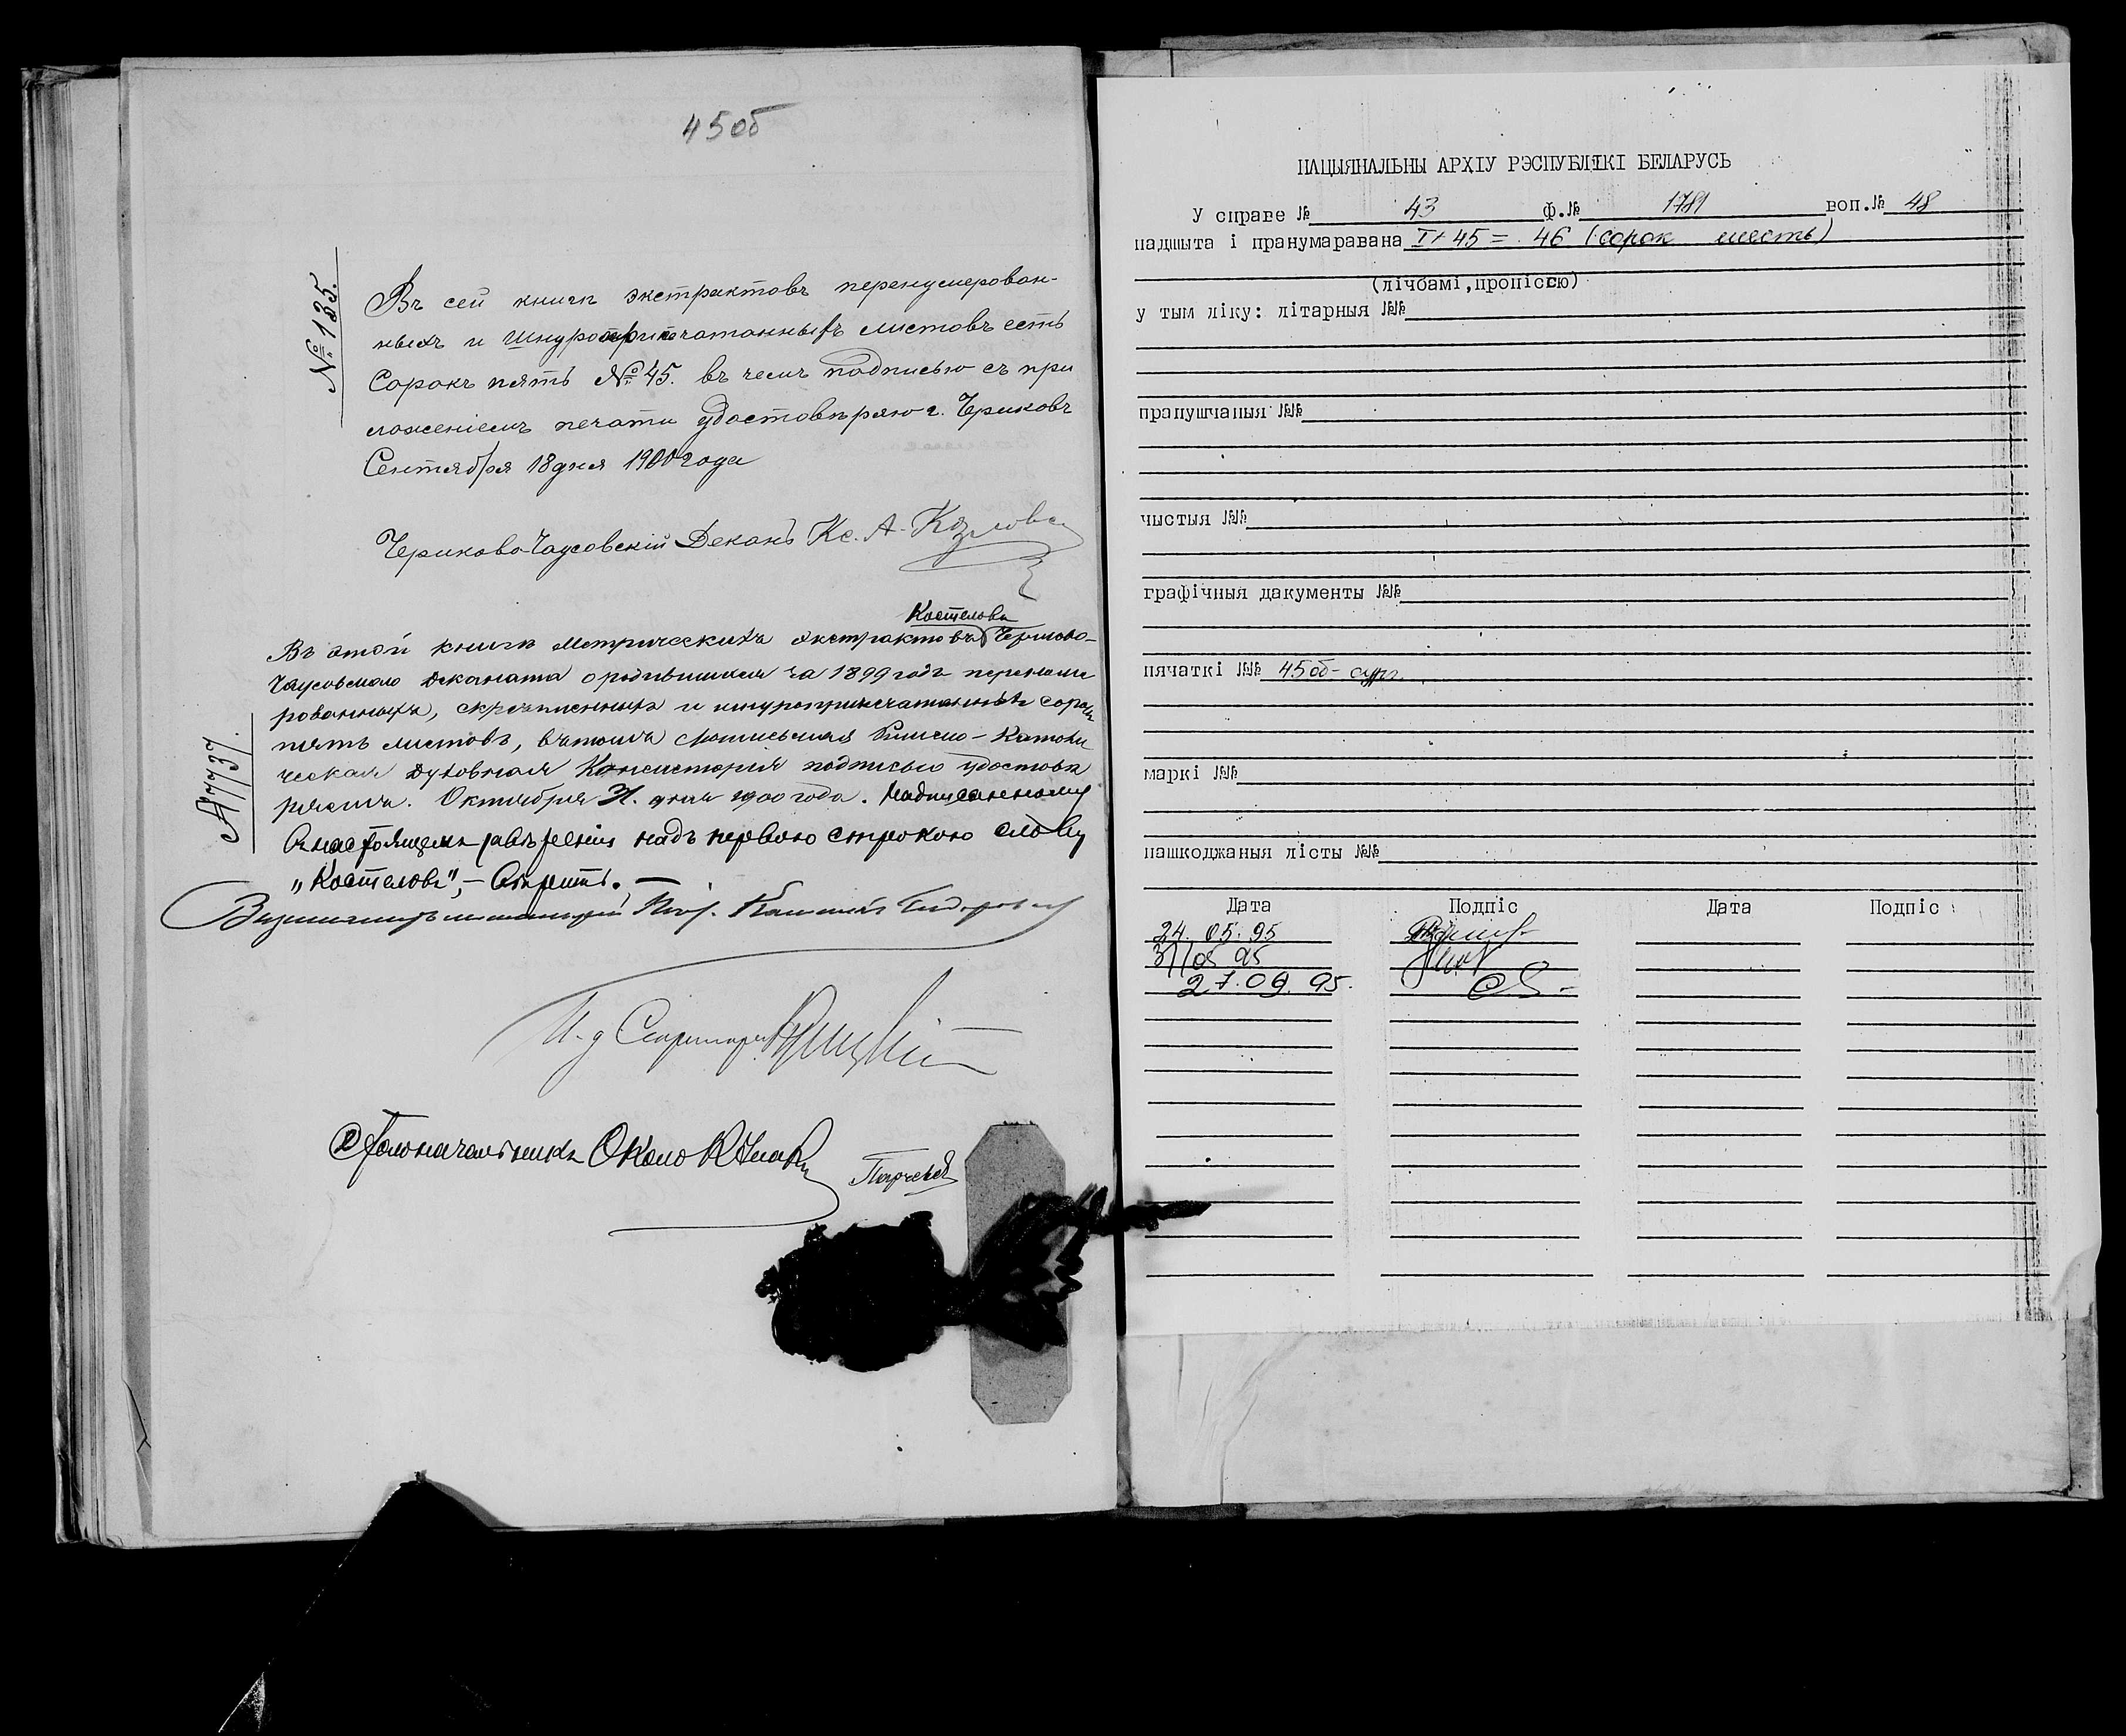 45об
№ 135.
Въ сей книгѣ экстрактовъ перенумерован-
ныхъ и шнуроприпечатанныхъ листовъ есть
Сорокъ пять №45. въ чемъ подписью съ при
ложеніемъ печати удостовѣряю г. Чериковъ
Сентября 18 дня 1900 года
Чериково-Чаусовскій Деканъ Кс. А.
Костеловъ
Въ этой книгѣ метрическихъ экстрактовъ Чериково-
Чаусовскаго деканата о родившихся за 1899 годъ
рованныхъ, скрѣпленныхъ и шнуроприпечатанныхъ сорокъ
пять листовъ, въ томъ Римско-Католи
ческая Духовная Консисторія подписью удостовѣ
ряетъ. Октября 31. дня 1900 года. Надписанному
надъ первою строкою слову
"Костеловъ", – вѣрить. –
№ 7737.
И. д. Секретаря
Столоначальникъ
НАЦЫЯНАЛЬНЫ АРХІУ РЭСПУБЛІКІ БЕЛАРУСЬ
У справе № 43 ф.№ 1781 воп.№ 48
падшыта і пранумаравана I+45= 46 (сорок шесть)
(лічбамі,пропіссю)
у тым ліку: літарныя №№
прапушчаныя №№
чыстыя №№
графічныя дакументы №№
пячаткі №№ 45об- сург.
маркі №№
пашкоджаныя лісты №№
Дата Подпіс Дата Подпіс
24. 05. 95
31/05 95
27.09. 95.